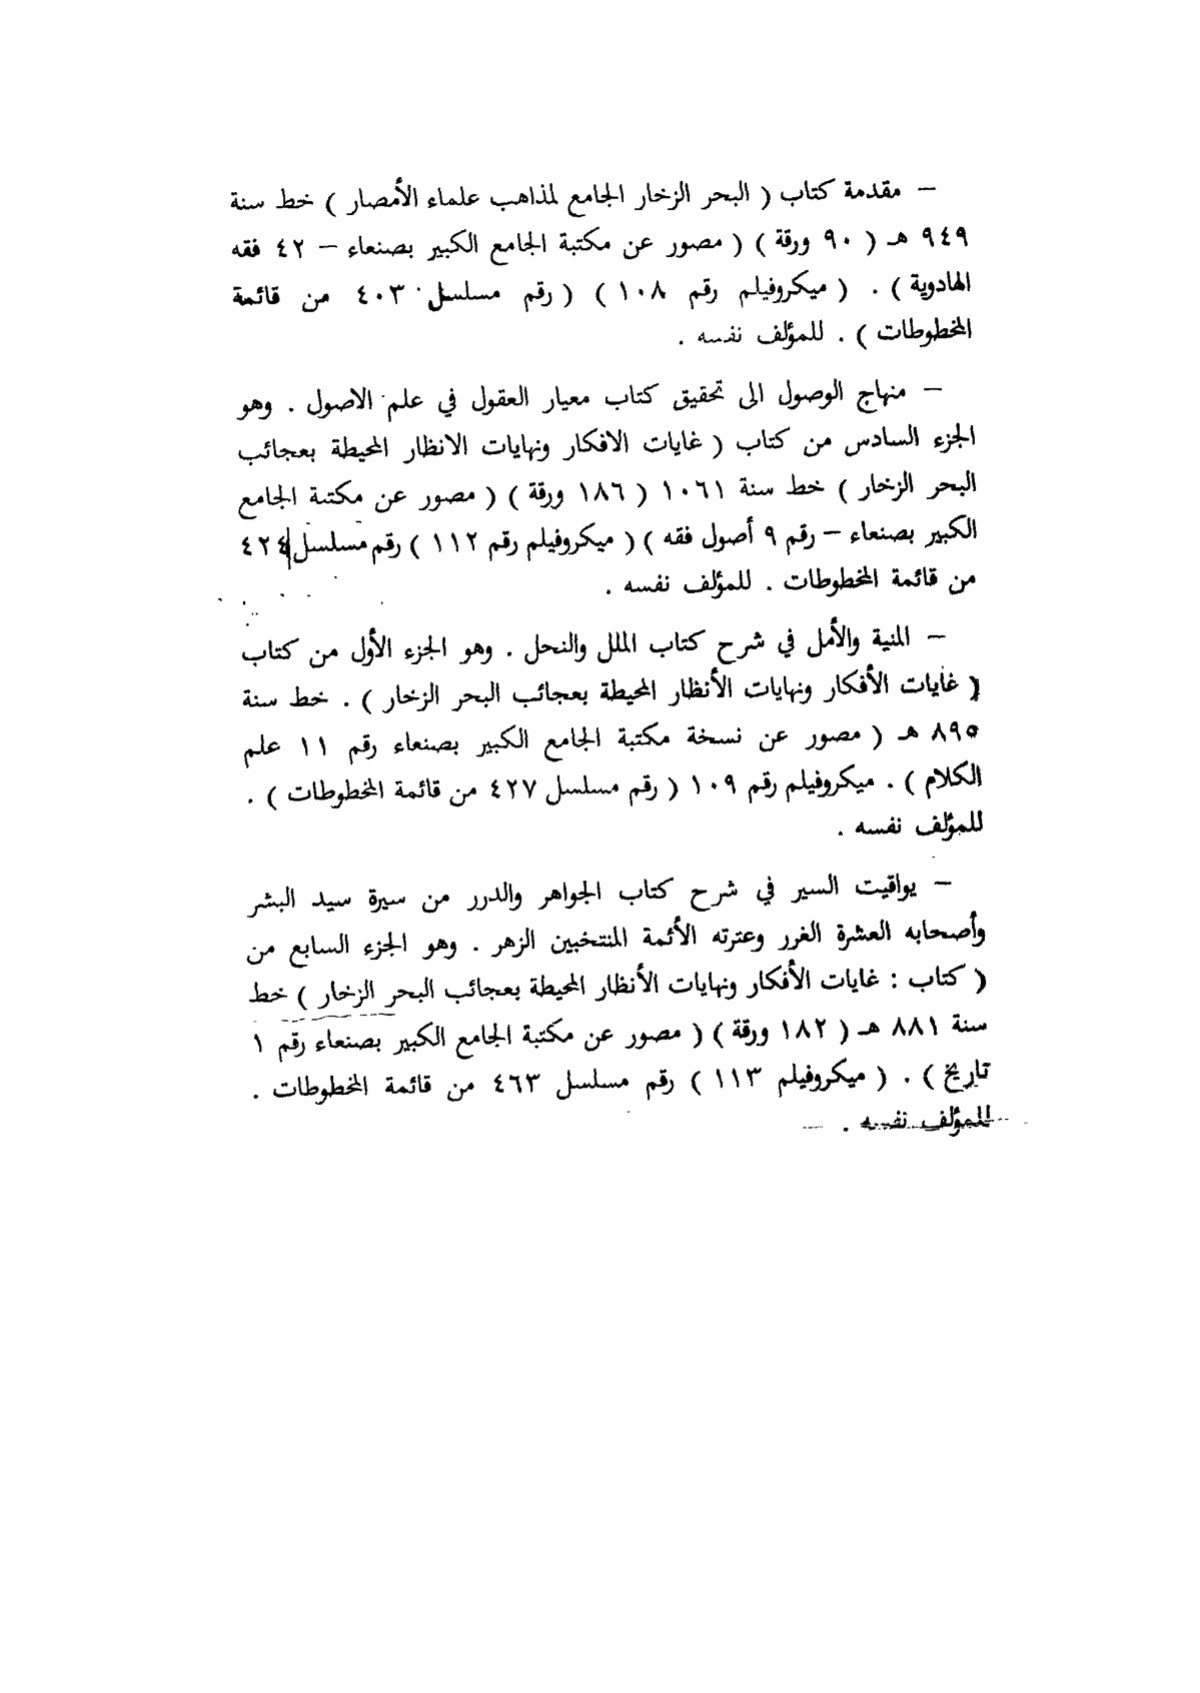 – مقدمة كتاب ( البحر الزخار الجامع لمذاهب علماء الأمصار ) خط سنة
٩٤٩ هـ ( ٩٠ ورقة ) ( مصور عن مكتبة الجامع الكبير بصنعاء – ٤٢ فقه
الهادوية ) . ( ميكروفيلم رقم ١٠٨ ) ( رقم مسلسل ٤٠٣ من قائمة
المخطوطات ) . للمؤلف نفسه .
– منهاج الوصول الى تحقيق كتاب معيار العقول في علم الاصول . وهو
الجزء السادس من كتاب ( غايات الافكار ونهايات الانظار المحيطة بعجائب
البحر الزخار ) خط سنة ١٠٦١ ( ١٨٦ ورقة ) ( مصور عن مكتبة الجامع
الكبير بصنعاء – رقم ٩ أصول فقه ) ( ميكروفيلم رقم ١١٢ ) رقم مسلسل ٤٢٤
من قائمة المخطوطات . للمؤلف نفسه .
– المنية والأمل في شرح كتاب الملل والنحل . وهو الجزء الأول من كتاب
( غايات الأفكار ونهايات الأنظار المحيطة بعجائب البحر الزخار ) . خط سنة
٨٩٥ هـ ( مصور عن نسخة مكتبة الجامع الكبير بصنعاء رقم ١١ علم
الكلام ) . ميكروفيلم رقم ١٠٩ ( رقم مسلسل ٤٢٧ من قائمة المخطوطات ) .
للمؤلف نفسه .
– يواقيت السير في شرح كتاب الجواهر والدرر من سيرة سيد البشر
وأصحابه العشرة الغرر وعترته الأئمة المنتخبين الزهر . وهو الجزء السابع من
( كتاب : غايات الأفكار ونهايات الأنظار المحيطة بعجائب البحر الزخار ) خط
سنة ٨٨١ هـ ( ١٨٢ ورقة ) ( مصور عن مكتبة الجامع الكبير بصنعاء رقم ١
تاريخ ) . ( ميكروفيلم ١١٣ ) رقم مسلسل ٤٦٣ من قائمة المخطوطات .
للمؤلف نفسه .